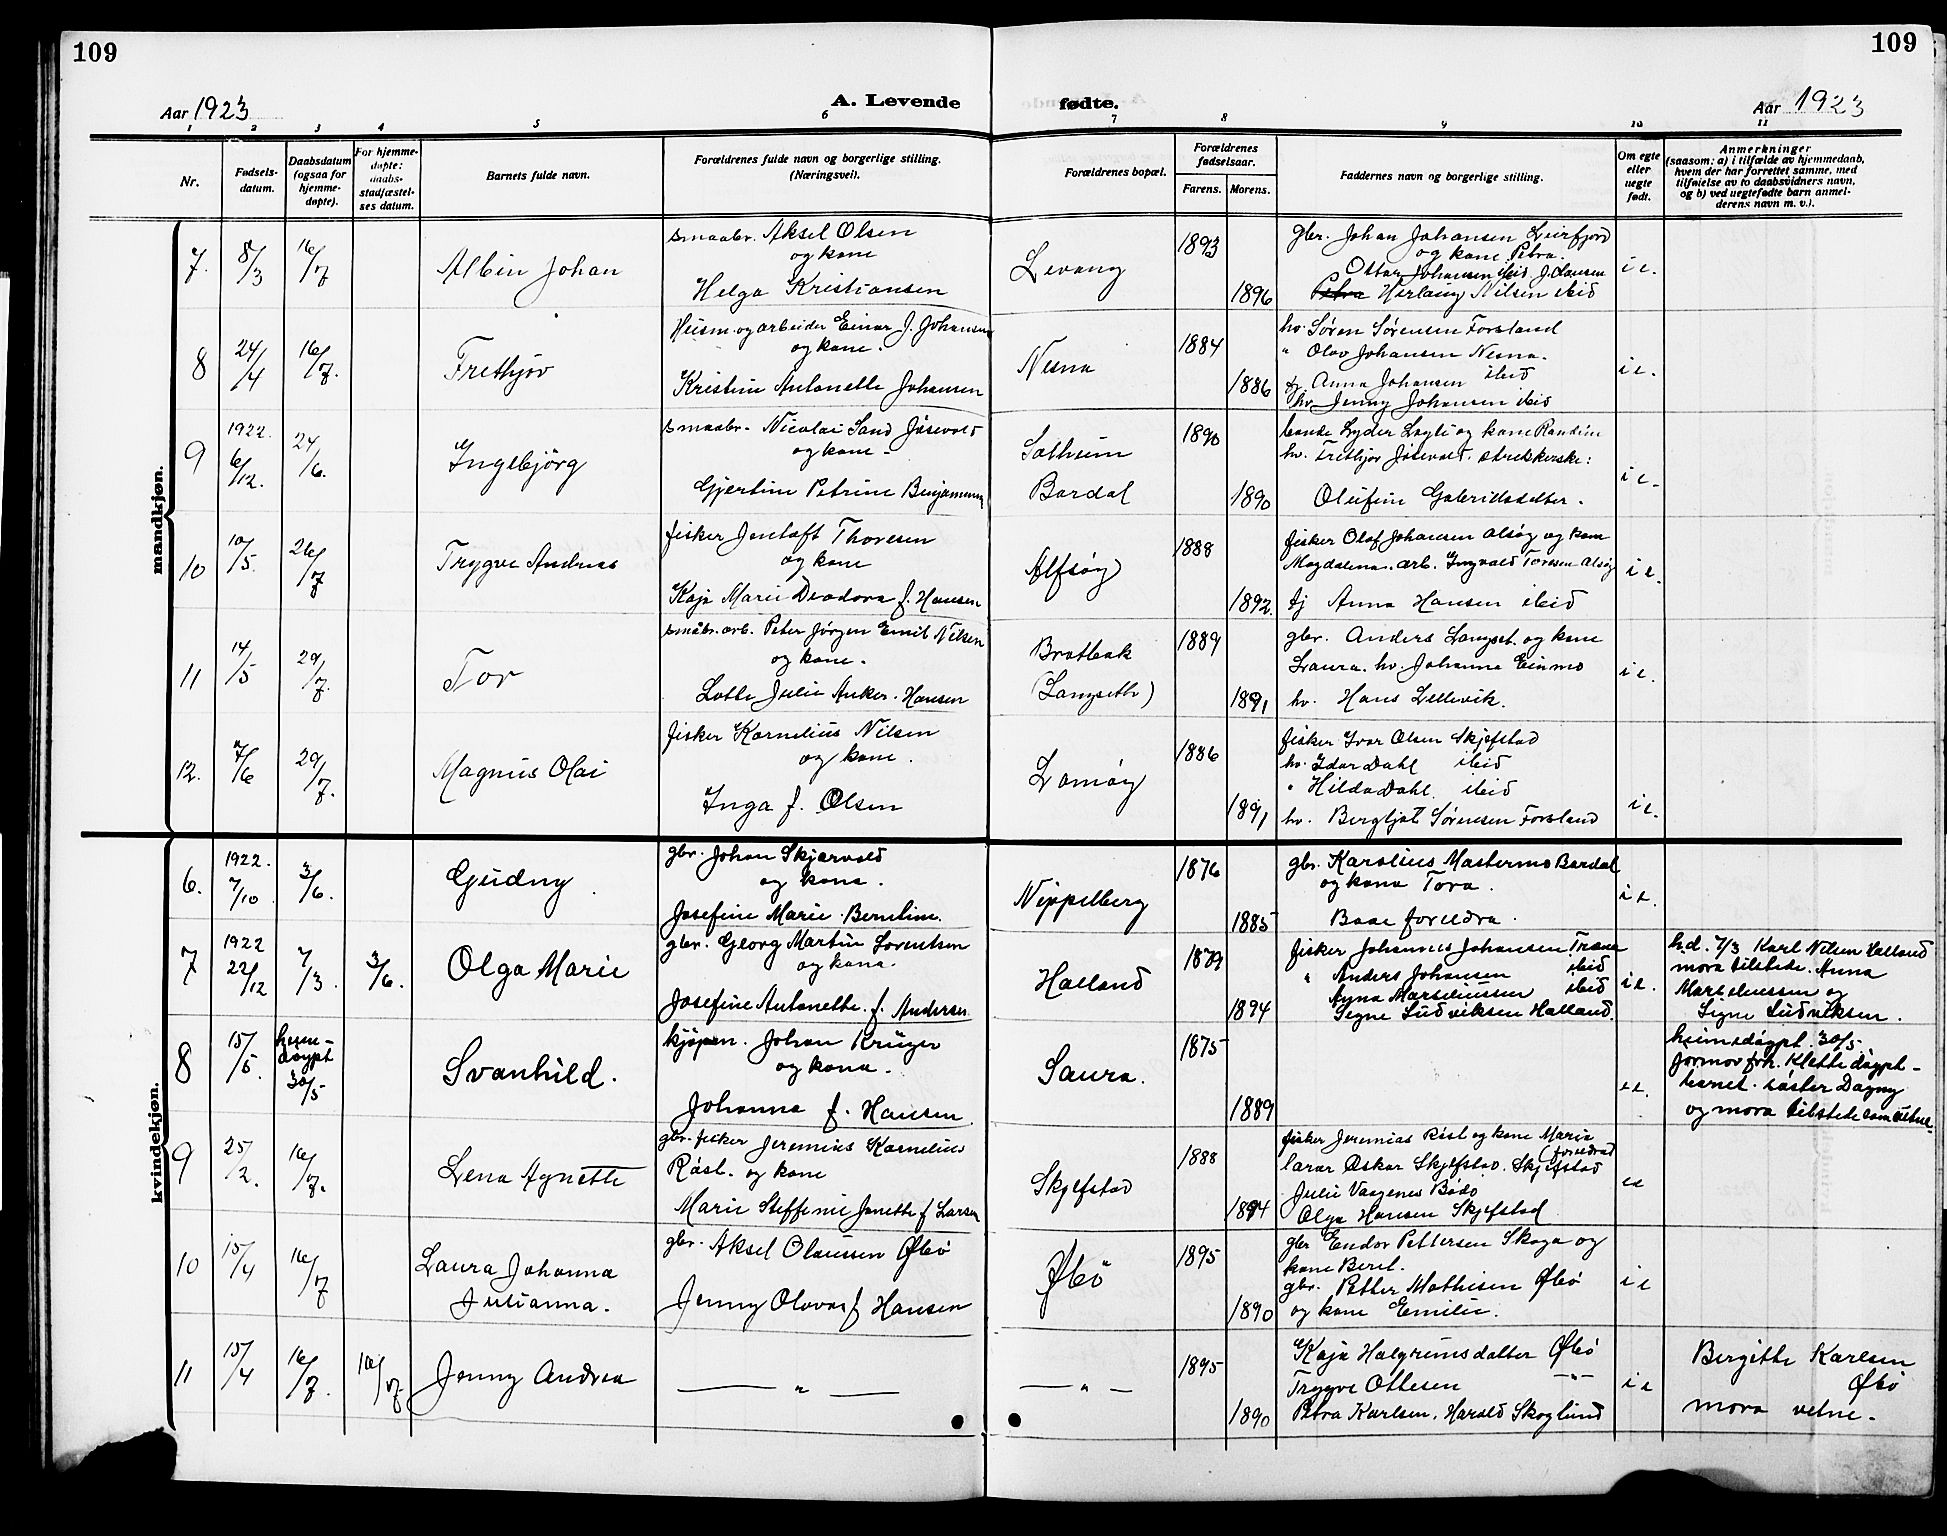 109
109
Aar 1923
A. Levende
fødte.
Aar 1923
1 2 3 4 5 6 7 8 9 10 11
Nr.
Fødsels-
datum.
Daabsdatum
(ogsaa for
hjemme-
døpte).
For hjemme-
døpte:
daabs-
stadfæstel-
ses datum.
Barnets fulde navn.
Forældrenes fulde navn og borgerlige stilling.
(Næringsvei).
Forældrenes bopæl.
Forældrenes
fødselsaar.
Farens. Morens.
Faddernes navn og borgerlige stilling.
Om egte
eller
uegte
født.
Anmerkninger
(saasom: a) i tilfælde av hjemmedaab,
hvem der har forrettet samme, med
tilføielse av to daabsvidners navn,
og b) ved uegtefødte barn anmel-
derens navn m. v.).
mandkjøn.
7. 8/3 16/7 Albin Johan
smaabr. Aksel Olsen
og kone
Helga Kristiansen
Levang
1893
1896
gbr. Johan Johansen Leirfjord
og kone Petra.
Ottar Johansen ibid. J. Clausen
Petra Herlaug Nilsen ibid
i e.
8 24/4 16/7. Frethjov
Husm. og arbeider Einar J. Johansen
og kone.
Kristine Antonette Johansen
Nesna
1884
1886
hv. Søren Sørensen Forsland
" Olav Johansen Nesna.
tj. Anna Johansen ibid
hv. Jenny Johansen ibid
i e.
9 1922. 6/12. 24/6. Ingebjörg
smaabr. Nicolai Sand Jösevold
og kone.
Gjertine Petrine Benjaminsen
Solheim
Bardal
1890
1890
bonde Lyder Løgti og kone Randine
hv. Frethjov Jösevold. strikkerske:
Olufine Gabrielsdatter.
i e.
10 10/5. 26/7 Trygve Andreas
fisker Jentoft Thoresen
og kone
Kaja Marie Deodora f. Hansen
Alfsöy
1888
1892.
fisker Olaf Johansen Alsöy og kone
Magdalena. arb. Ingvald Toresen Alsöy
tj Anna Hansen ibid
i e.
11 14/5 29/7. Tor
småbr. arb. Peter Jörgen Emil Nilsen
og kone.
Lotte Julie Anker. Hansen
Bratbak
(Langseth)
1889
1891
gbr. Anders Langset. og kone
Laura. hv. Johanna Einmo
hv. Hans Lillevik.
i e.
12. 7/6 29/7. Magnus Olai
fisker Kornelius Nilsen
og kone.
Inga f. Olsen
Lamöy
1886
1891
fisker Ivar Olsen Skjefstad
hv. Idar Dahl ibid
" Hilda Dahl ibid
hv. Bergljot Sörensen Forsland
i e.
kvindekjøn.
6. 1922. 7/10 3/6. Gudny
gbr. Johan Skjærvold
og kona.
Josefine Marie Berntine.
Nippelberg
1876
1885
gbr. Karolius Mastermo Bardal
og kona Tora.
Baae foreldra.
i e.
7 1922 22/12 7/3. 3/6. Olga Marie
gbr. Georg Martin Lorentsen
og kona.
Josefine Antonette. f. Andersen
Halland
1879
1894
fisker Johannes Johansen Træna
" Anders Johansen ibid
Anna Marseliussen ibid
Signe Ludviksen Halland.
i e.
h.d. 7/3 Karl Nilsen Halland
mora tilstede. Anna
Marseliussen og
Signe Ludviksen.
8 15/5. heim-
døypt
30/5 Svanhild.
kjöpm. Johan Krüger
og kona.
Johanna f. Hansen
Saura.
1875
1889
i e.
heimedöypt. 30/5.
jormor frk. Klette döypt-
barnet. søster Dagny
og mora tilstede som vitne.
9 25/2. 16/7. Lena Agnette
gbr. fisker Jeremias Kornelius
Röst. og kone
Marie Steffenie Janette f Larsen
Skjefstad
1888
1894
fisker Jeremias Röst og kone Marie
(foreldra)
lærar Oskar Skjefstad. Skjefstad
Julie Vaagenes Bodö
Olga Hansen Skjefstad.
i e
10 15/4 16/7 Laura Johanna
Julianna.
gbr. Aksel Olaussen Øbö
Jenny Olava f Hansen
Øbö
1895
1890
gbr Endor Pettersen Skaga og
kone Beret.
gbr. Petter Mathisen Øbö
og kone Emilie.
i e
11 15/4 16/7. 16/7. Jenny Andrea
— " —
— " —
1895
1890
Kaja Halgrimsdatter Øbö
Trygve Ottesen — " —
Petra Karlsen. Harald Skoglund
i e
Bergitte Karlsen
Øbö
mora vitne.